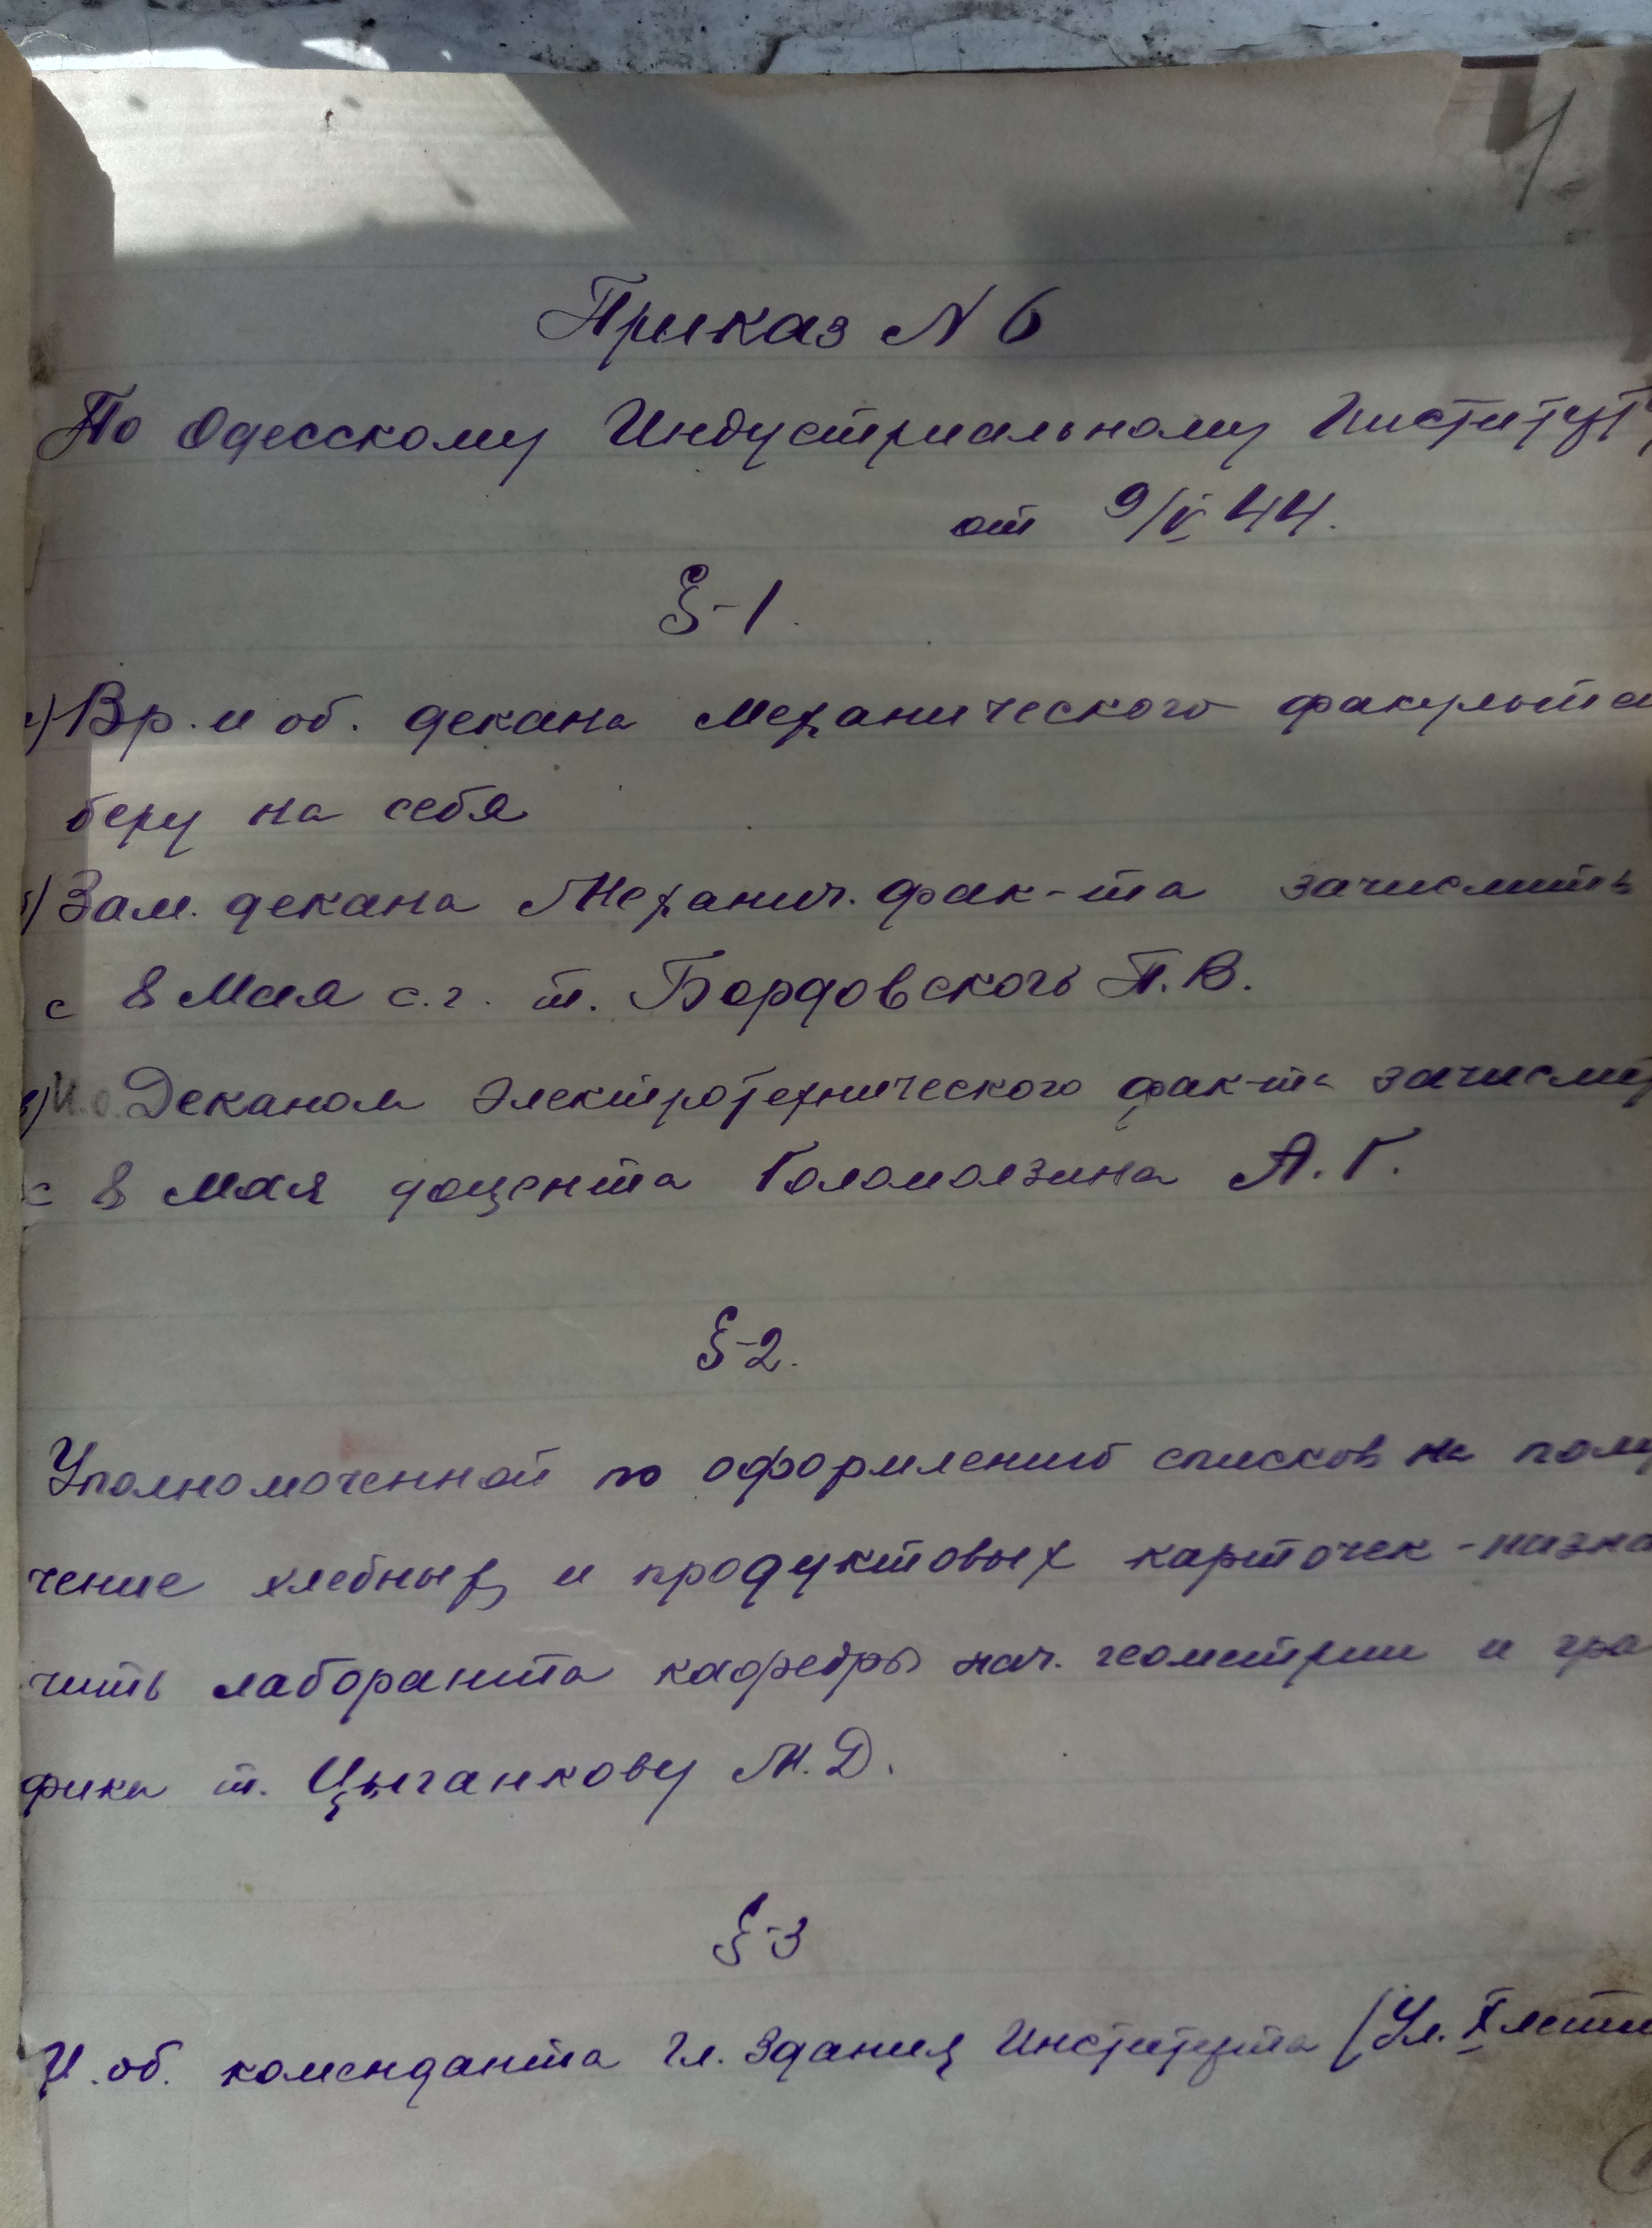 1
Приказ N 6
По Одесскому Индустриальному Институт
от 9/V 44.
§-1.
а) Вр. и об. декана Механического факульта
беру на себя
б) Зам. декана Механич. фак-та зачислить
с 8 Мая с.г. т. Бордовского П.В.
в) И.о. Деканом Электротехнического фак-та зачисли
с 8 Мая доцента Голомолзина А.Г.
§-2.
Уполномоченной по оформлению списков на полу
чение хлебных и продуктовых карточек - назна
чить лаборанта кафедры нач. геометрии и гра
фики т. Цыганкову М.Д.
§-3
И.об. коменданта Гл. Здания Института (Ул. X летия